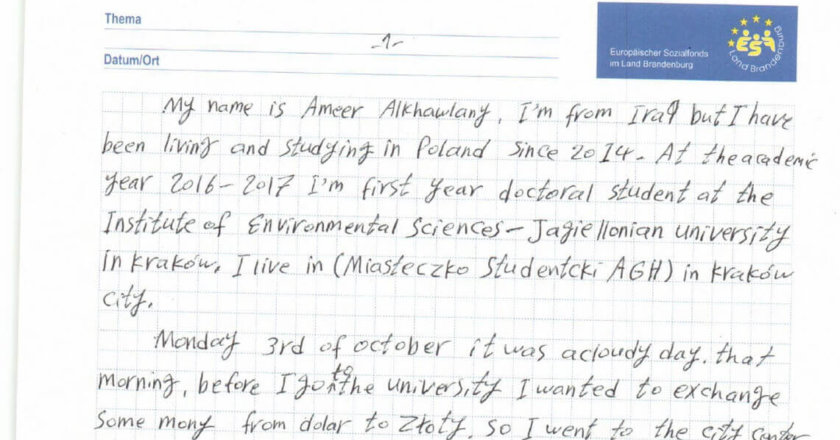 Thema
-1-
Datum/Ort
Europäischer Sozialfonds
im Land Brandenburg
ESF
Land Brandenburg
My name is Ameer Alkhawlany, I'm from Iraq but I have
been living and studying in Poland since 2014. At the academic
year 2016-2017 I'm first year doctoral student at the
Institute of Environmental Sciences - Jagiellonian university
in Kraków. I live in (Miasteczko Studentcki AGH) in Kraków
city.
Monday 3rd of october it was a cloudy day. that
morning, before I go to the university I wanted to exchange
some mony from dolar to Złoty, so I went to the city center